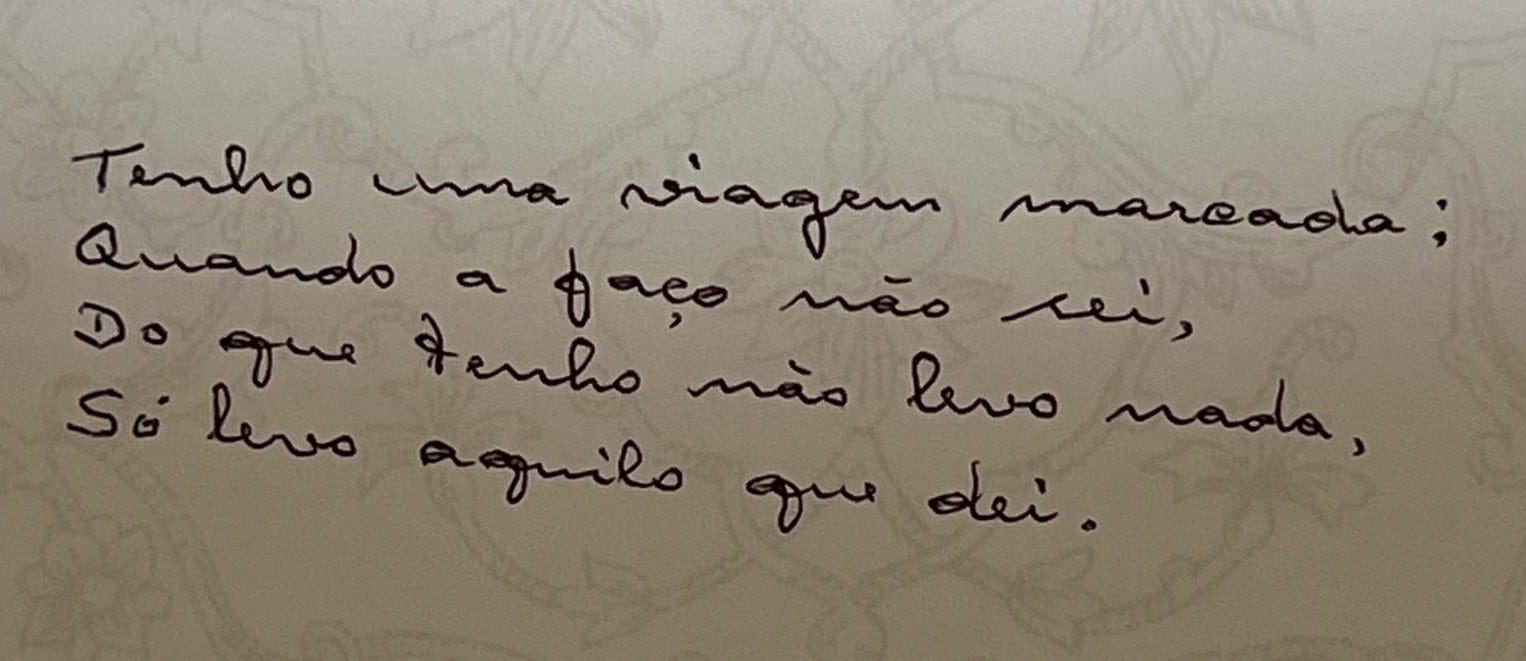 Tenho uma viagem marcada;
Quando a faço não sei,
Do que tenho não levo nada,
Só levo aquilo que dei.